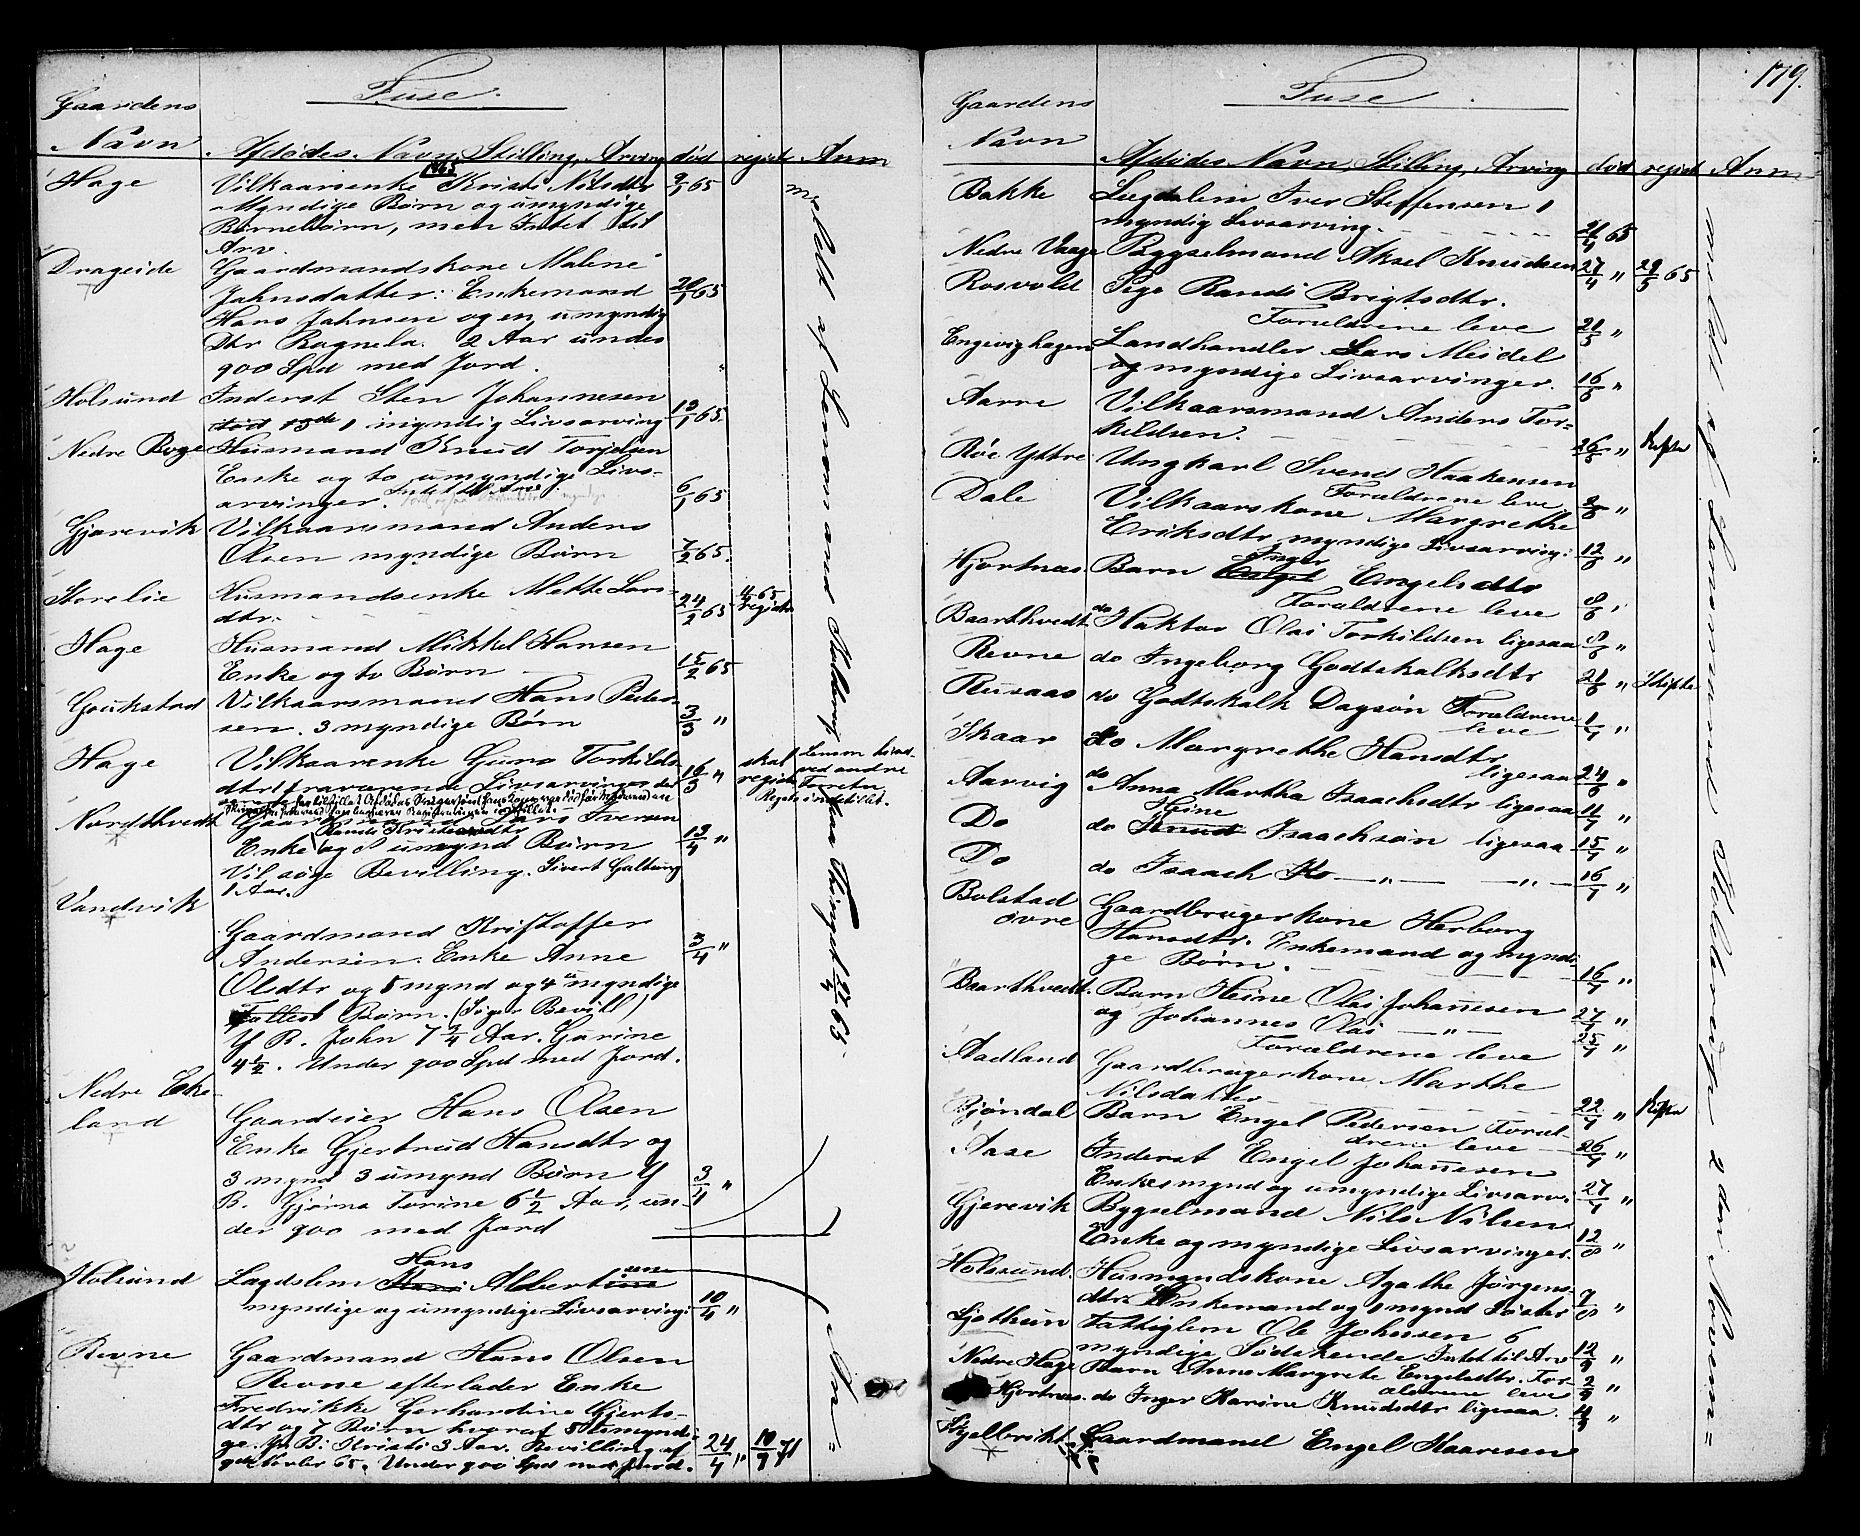 Fuse.
Gaardens
Navn
Afdødes Navn, Stilling, Arving død regist Anm
1865
Hage Vilkaarsenke Kristi Nilsdtr 9/1 65
Myndige Børn og umyndige
Børnebørn, men Intet til
Arv.
Drageide Gaardmandskone Malene
Jahnsdatter: Enkemand 20/1 65
Hans Jahnsen og en umyndig
Dtr Ragnela. 2 Aar under
900 Spd med Jord.
Holsund Inderst Sten Johannesen
1 myndig Livsarving 12/1 65
Nedre Bøge Husmand Knud Torjelsen
Enke og to umyndige Livs-
arvinger. Intet til Arv. 6/1 65
Gjerevik Vilkaarsmand Anders
Olsen myndige Børn 7/2 65.
Storelie Husmandsenke Mette Lars-
dtr. 24/2 65 registr
Hage Husmand Mikkel Hansen
Enke og to Børn 15/2 65
Goukstad Vilkaarsmand Hans Peder-
sen. 3 myndige Børn 3/3 "
Hage Vilkaarenke Guro Torkilds-
dtr fraværende Livsarvinger 16/3 " skal registr
Nordthvedt Gaardmand Lars Iversen
Enke og umynd Børn 13/4 "
Vil søge Bevilling. Sivert Galtung
1 Aar.
Vandvik
Gaardmand Kristoffer
Andersen. Enke Anne 3/4 "
Olsdtr og 5 mynd og 4 umyndige
Børn. (Søger Bevill)
Y B. John 7 3/4 Aar. Gurine
4 1/2. Under 900 Spd med Jord.
Nedre Eke-
land
Gaardeier Hans Olsen
Enke Gjertrud Hansdtr og
3 mynd 3 umynd Børn Y 3/4 "
B. Gjørna Torine 6 1/2 Aar, un-
der 900 med Jord
Holsund Lægdslem Hans Albertsen
myndige og umyndige Livsarving: 10/4 "
Revne Gaardmand Hans Olsen
Revne efterlader Enke
Fredrikke Gerhardine Gjerts-
dtr og 7 Børn hvoraf 5 umyndi-
ge. Y. B. Kristi 3 Aar. Bevilling af
65. Under 900 Spd med Jord. 24/4 " 10/9 71
meldt af Lensmand Rolderup paa Thinget 27/4 65
179.
Fuse
Gaardens
Navn
Afdødes Navn, Stilling, Arving død regist Anm
Bakke Lægdslem Iver Steffensen 1
myndig Livsarving. 21/4 65
Nedre Vaage Bygselmand Aksel Knudsen 27/4 " 29/5 65
Rosvold Pige Randi Brigtsdtr.
Forældrene leve 21/5 "
Engevighagen Landhandler Lars Meidel
og myndige Livsarvinger. 16/6 "
Aarre Vilkaarsmand Anders Tor-
kildsen. 26/5 " Skifte
Røe Yttre Ungkarl Svend Haakensen
Forældrene leve 2/6 "
Dale Vilkaarskone Margrethe
Eriksdtr myndige Livsarving: 12/6 "
Hjortnæs Barn Inger Engelsdtr
Forældrene leve 8/6 "
Baarthvedt do Haktor Olai Torkildsen ligesaa 8/6 "
Revne do Ingeborg Godtskalksdtr 21/6 " Skifte
Rusaas do Godtskalk Dagsøn Forældrene
leve 1/7 "
Skaar do Margrethe Hansdtr
ligesaa 24/6 "
Aarvig do Anna Martha Isaachsdtr ligesaa 11/7 "
Do do Heine Isaachsøn ligesaa 15/7 "
Do do Isaach do — " — — " — 16/7 "
Bolstad
øvre Gaardbrugerkone Herborg
Hansdtr. Enkemand og myndi-
ge Børn. 16/7 "
Baarthvedt. Barn Heine Olai Johannesen 27/7 "
og Johannes Olai — " — 25/7 "
Forældrene leve
Aadland Gaardbrugerkone Marthe
Nilsdatter 22/7 " Skifte
Bjøndal Barn Engel Pedersen Foræl-
drene leve 26/7 "
Aase Inderst Engel Johannesen
Enke mynd og umyndige Livsarv: 27/7 "
Gjerevik Bygselmand Nils Nilsen
Enke og myndige Livsarvinger. 12/8 "
Holssund. Husmandskone Agathe Jørgens-
dtr. Enkemand og 1 mynd Søster 7/8 "
Ljothun Fattiglem Ole Johnsen 6
myndige Sødskende Intet til Arv 12/9 "
Nedre Hage Barn Anne Margrete Engelsdtr. For-
ældrene leve 2/9 "
Hjortnæs. do Inger Karine Knudsdtr ligesaa. 4/9 "
Skjelbrikt Gaardmand Engel Haavesen
meldt af Lensmand Rolderup 2den Novem=